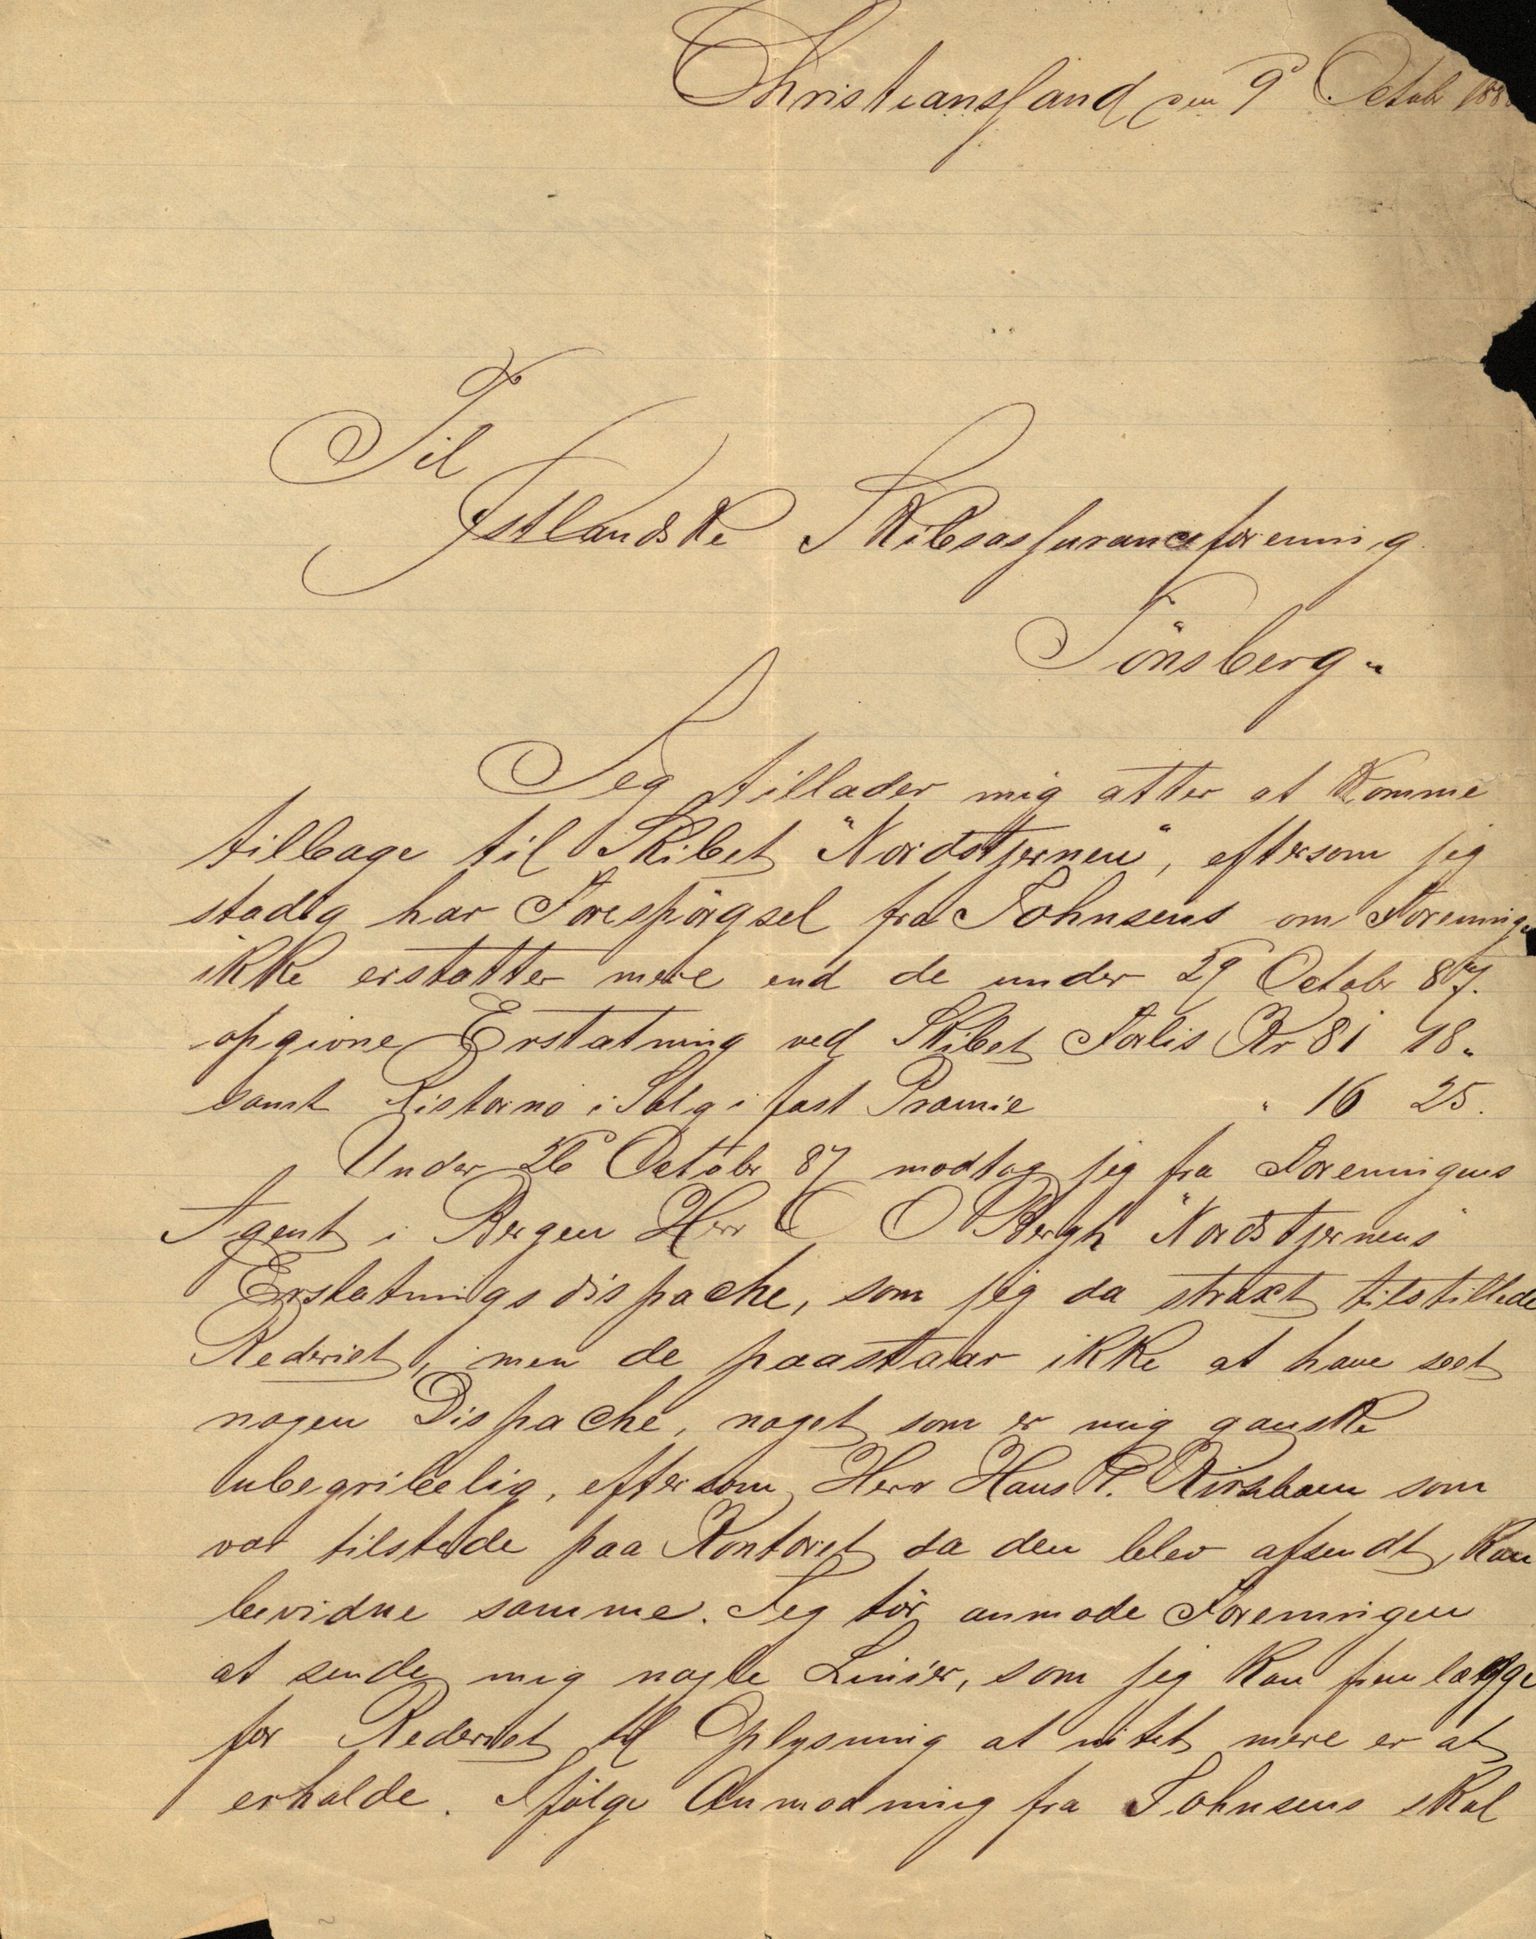 Christianssand den 9 Octobr 188
Til
Østlandske Skibsassuranceforening
Tönsberg.
Jeg tillader mig atter at komme
tilbage til Skibet "Nordstjernen", eftersom jeg
stadig har Forespörgsel fra Johnsens om Forening
ikke erstatter mere end de under 29 Octobr 87.
opgivne Erstatning ved Skibet Forlis Kr 81 18.
samt Ristorno i Salg i fast Præmie " 16 25.
Under 26 Octobr 87 modtog jeg fra Foreningens
Agent i Bergen Herr C O Bergh "Nordstjernens"
Erstatningsdispache, som jeg da straxt tilstillede
Rederiet, men de paastaar ikke at have seet
nogen Dispache, noget som er mig ganske
ubegribelig, eftersom Herr Hans P.
som
var tilstede paa Kontoret da den blev afsendt, kan
bevidne samme. Jeg tör anmode Foreningen
at sende mig nogle Linier, som jeg kan fremlægge
for Rederiet til Oplysning at intet mere er at
erholde. Ifölge Anmodning fra Johnsens skal